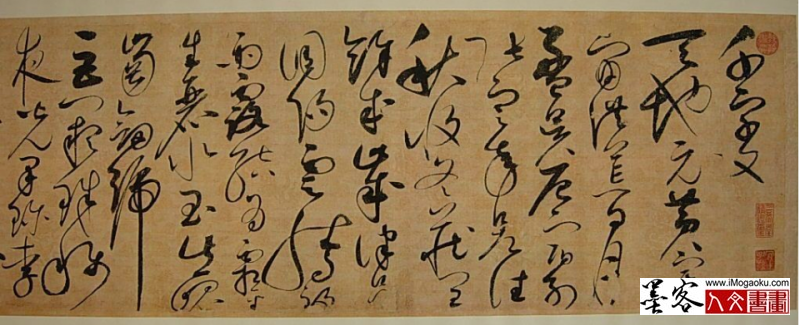 千字文
天地元黃宇
宙洪荒日月
盈昃辰宿列
張寒來暑往
秋收冬藏閏
餘成歲律呂
調陽雲騰致
雨露結為霜金
生麗水玉出崑
崗劍號
巨闕珠稱
夜光果珍李
墨客
www.iMogaoku.com
人文書畫